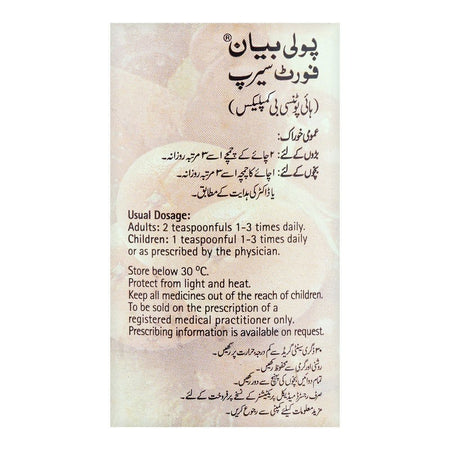 پولی بیان®
فورٹ سیرپ
(ہائی پوٹنسی بی کمپلیکس)
عمومی خوراک:
بڑوں کے لئے: ۲ چائے کے چمچے ۱ سے ۳ مرتبہ روزانہ۔
بچوں کے لئے: ۱ چائے کا چمچہ ۱ سے ۳ مرتبہ روزانہ۔
یا ڈاکٹر کی ہدایت کے مطابق۔
Usual Dosage:
Adults: 2 teaspoonfuls 1-3 times daily.
Children: 1 teaspoonful 1-3 times daily
or as prescribed by the physician.
Store below 30 ºC.
Protect from light and heat.
Keep all medicines out of the reach of children.
To be sold on the prescription of a
registered medical practitioner only.
Prescribing information is available on request.
۳۰ ڈگری سینٹی گریڈ سے کم درجہ حرارت پر رکھیں۔
روشنی اور گرمی سے محفوظ رکھیں۔
تمام دوائیں بچوں کی پہنچ سے دور رکھیں۔
صرف رجسٹرڈ میڈیکل پریکٹیشنر کے نسخے پر فروخت کے لئے۔
مزید معلومات کیلئے کمپنی سے رجوع کریں۔